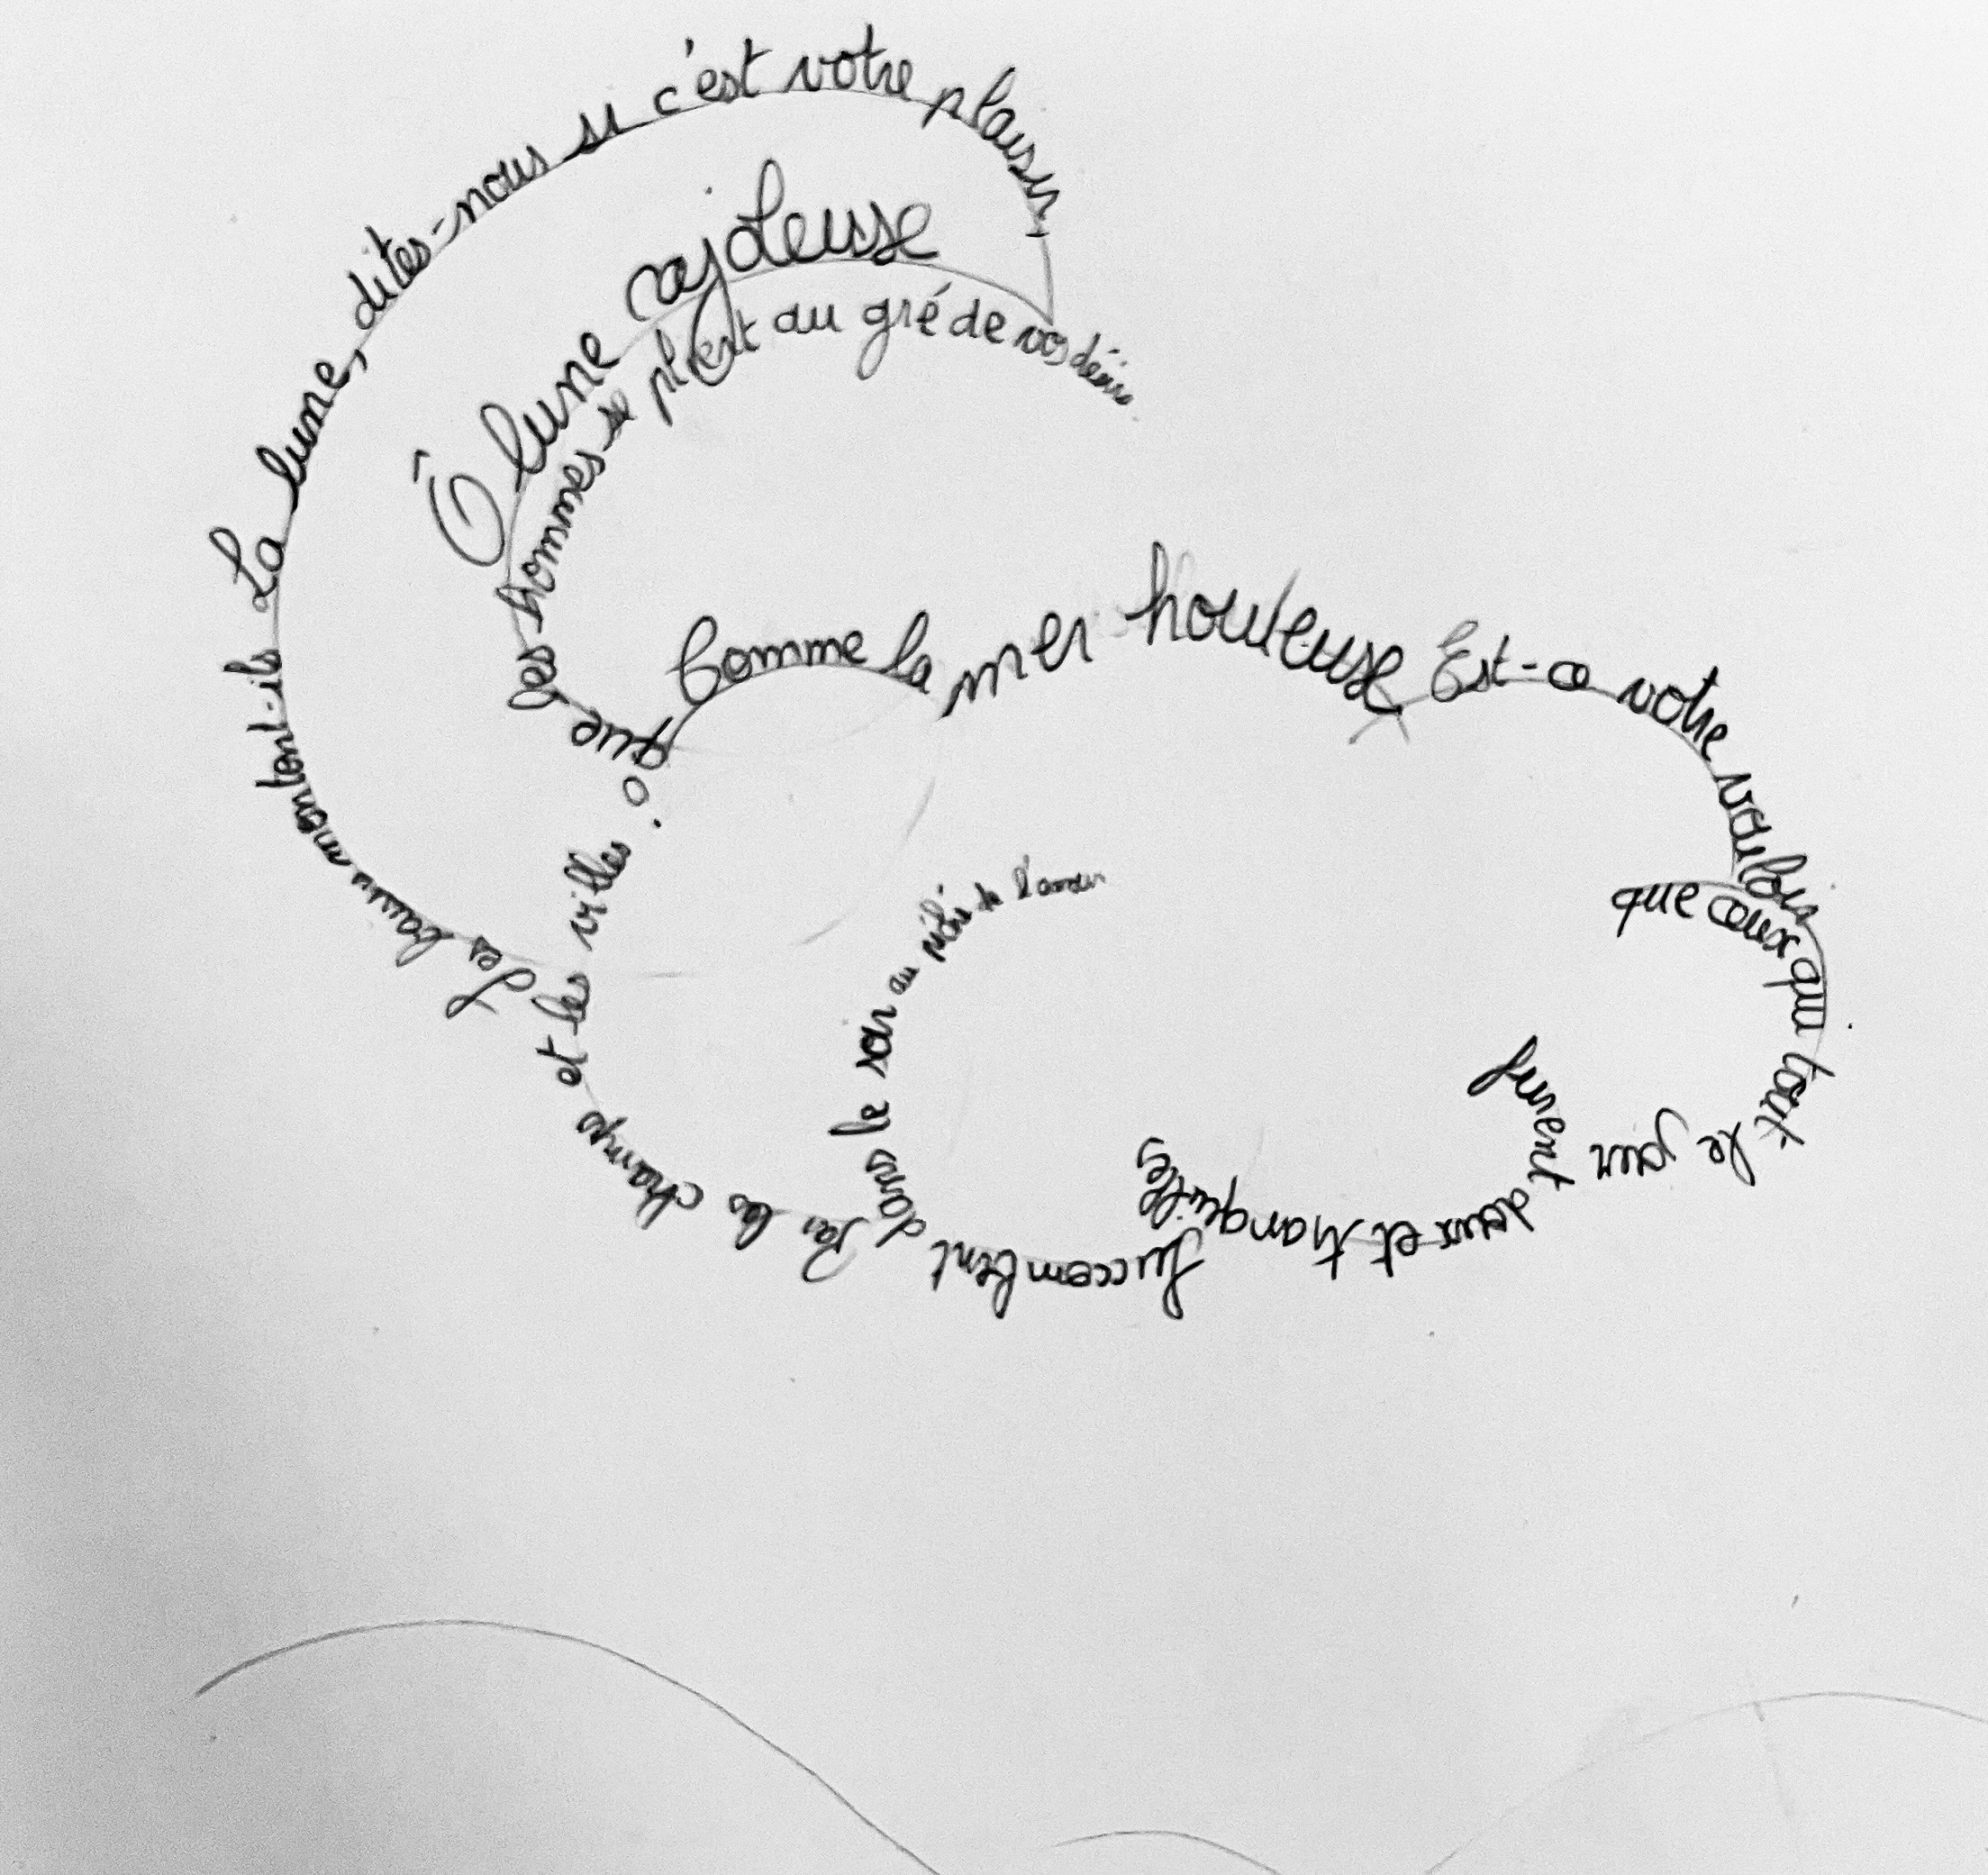 La lune, dites-nous si c'est votre plaisir,
Ô lune cajoleuse
que les hommes se plient au gré de vos désirs.
Comme la mer houleuse
Est-ce votre vouloir
que ceux qui tout le jour
furent doux et tranquilles,
Succombent dans le soir au péché de l'amour
Par les champs et les villes
Les baux montent-ils